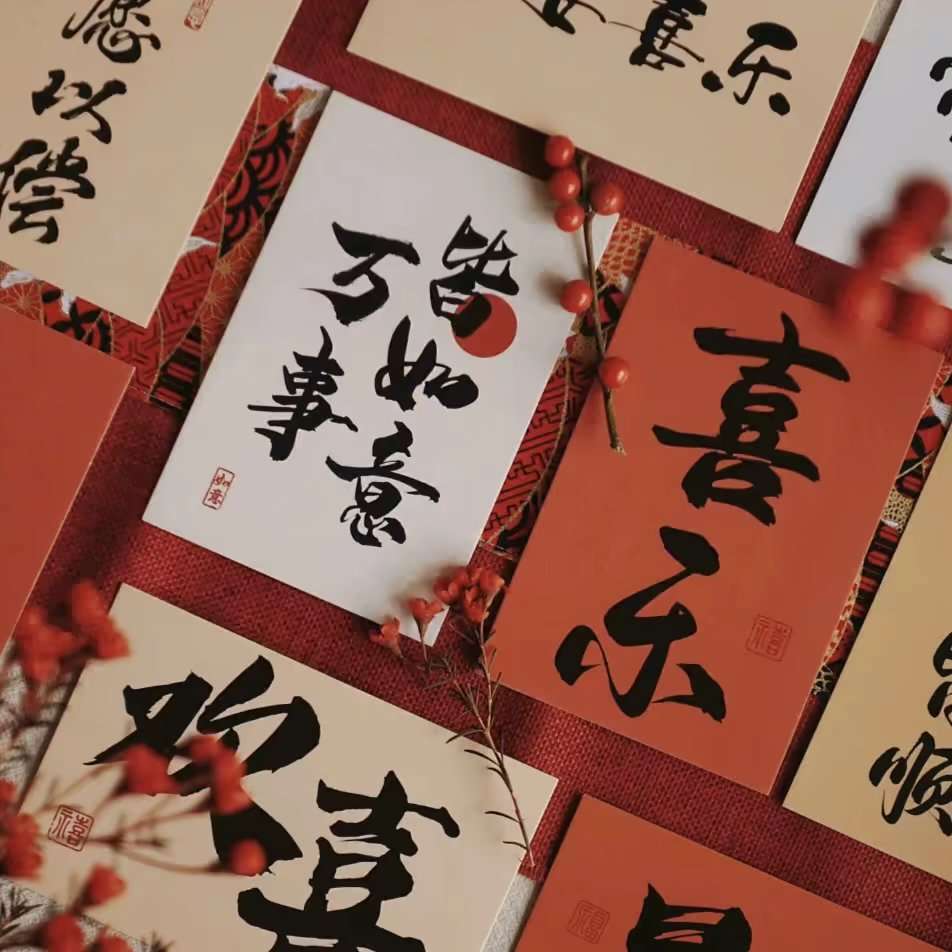 愿以偿
喜乐
万事
皆如意
如意
喜乐
禧
欢喜
禧
顺
禧